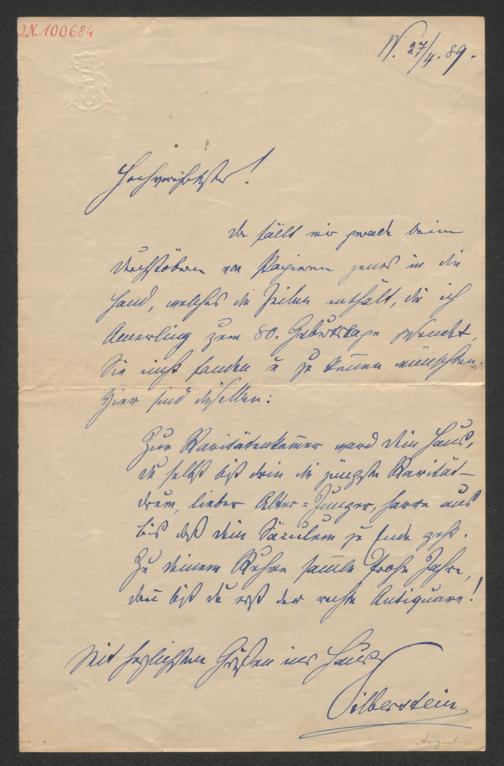 I.N. 100684
W. 27/4. 89.
Hochverehrtester!
Da fällt mir gerade beim
Durchstöbern von Papieren jenes in die
Hand, welches die Zeilen enthält, die ich
Amerling zum 80. Geburtstage gesendet,
Sie nicht fanden u zu kennen wünschten.
Hier sind dieselben:
Zur Raritätenkammer ward dein Haus,
Du selbst bist drin die jüngste Rarität –
drum, lieber Alter-Junger, harre aus
bis daß dein Säculum zu Ende geht.
Zu deinem Ruhme samle frohe Jahre,
dan bist du erst der rechte Antiquare!
Mit herzlichsten Grüßen ins Haus
Silberstein
August